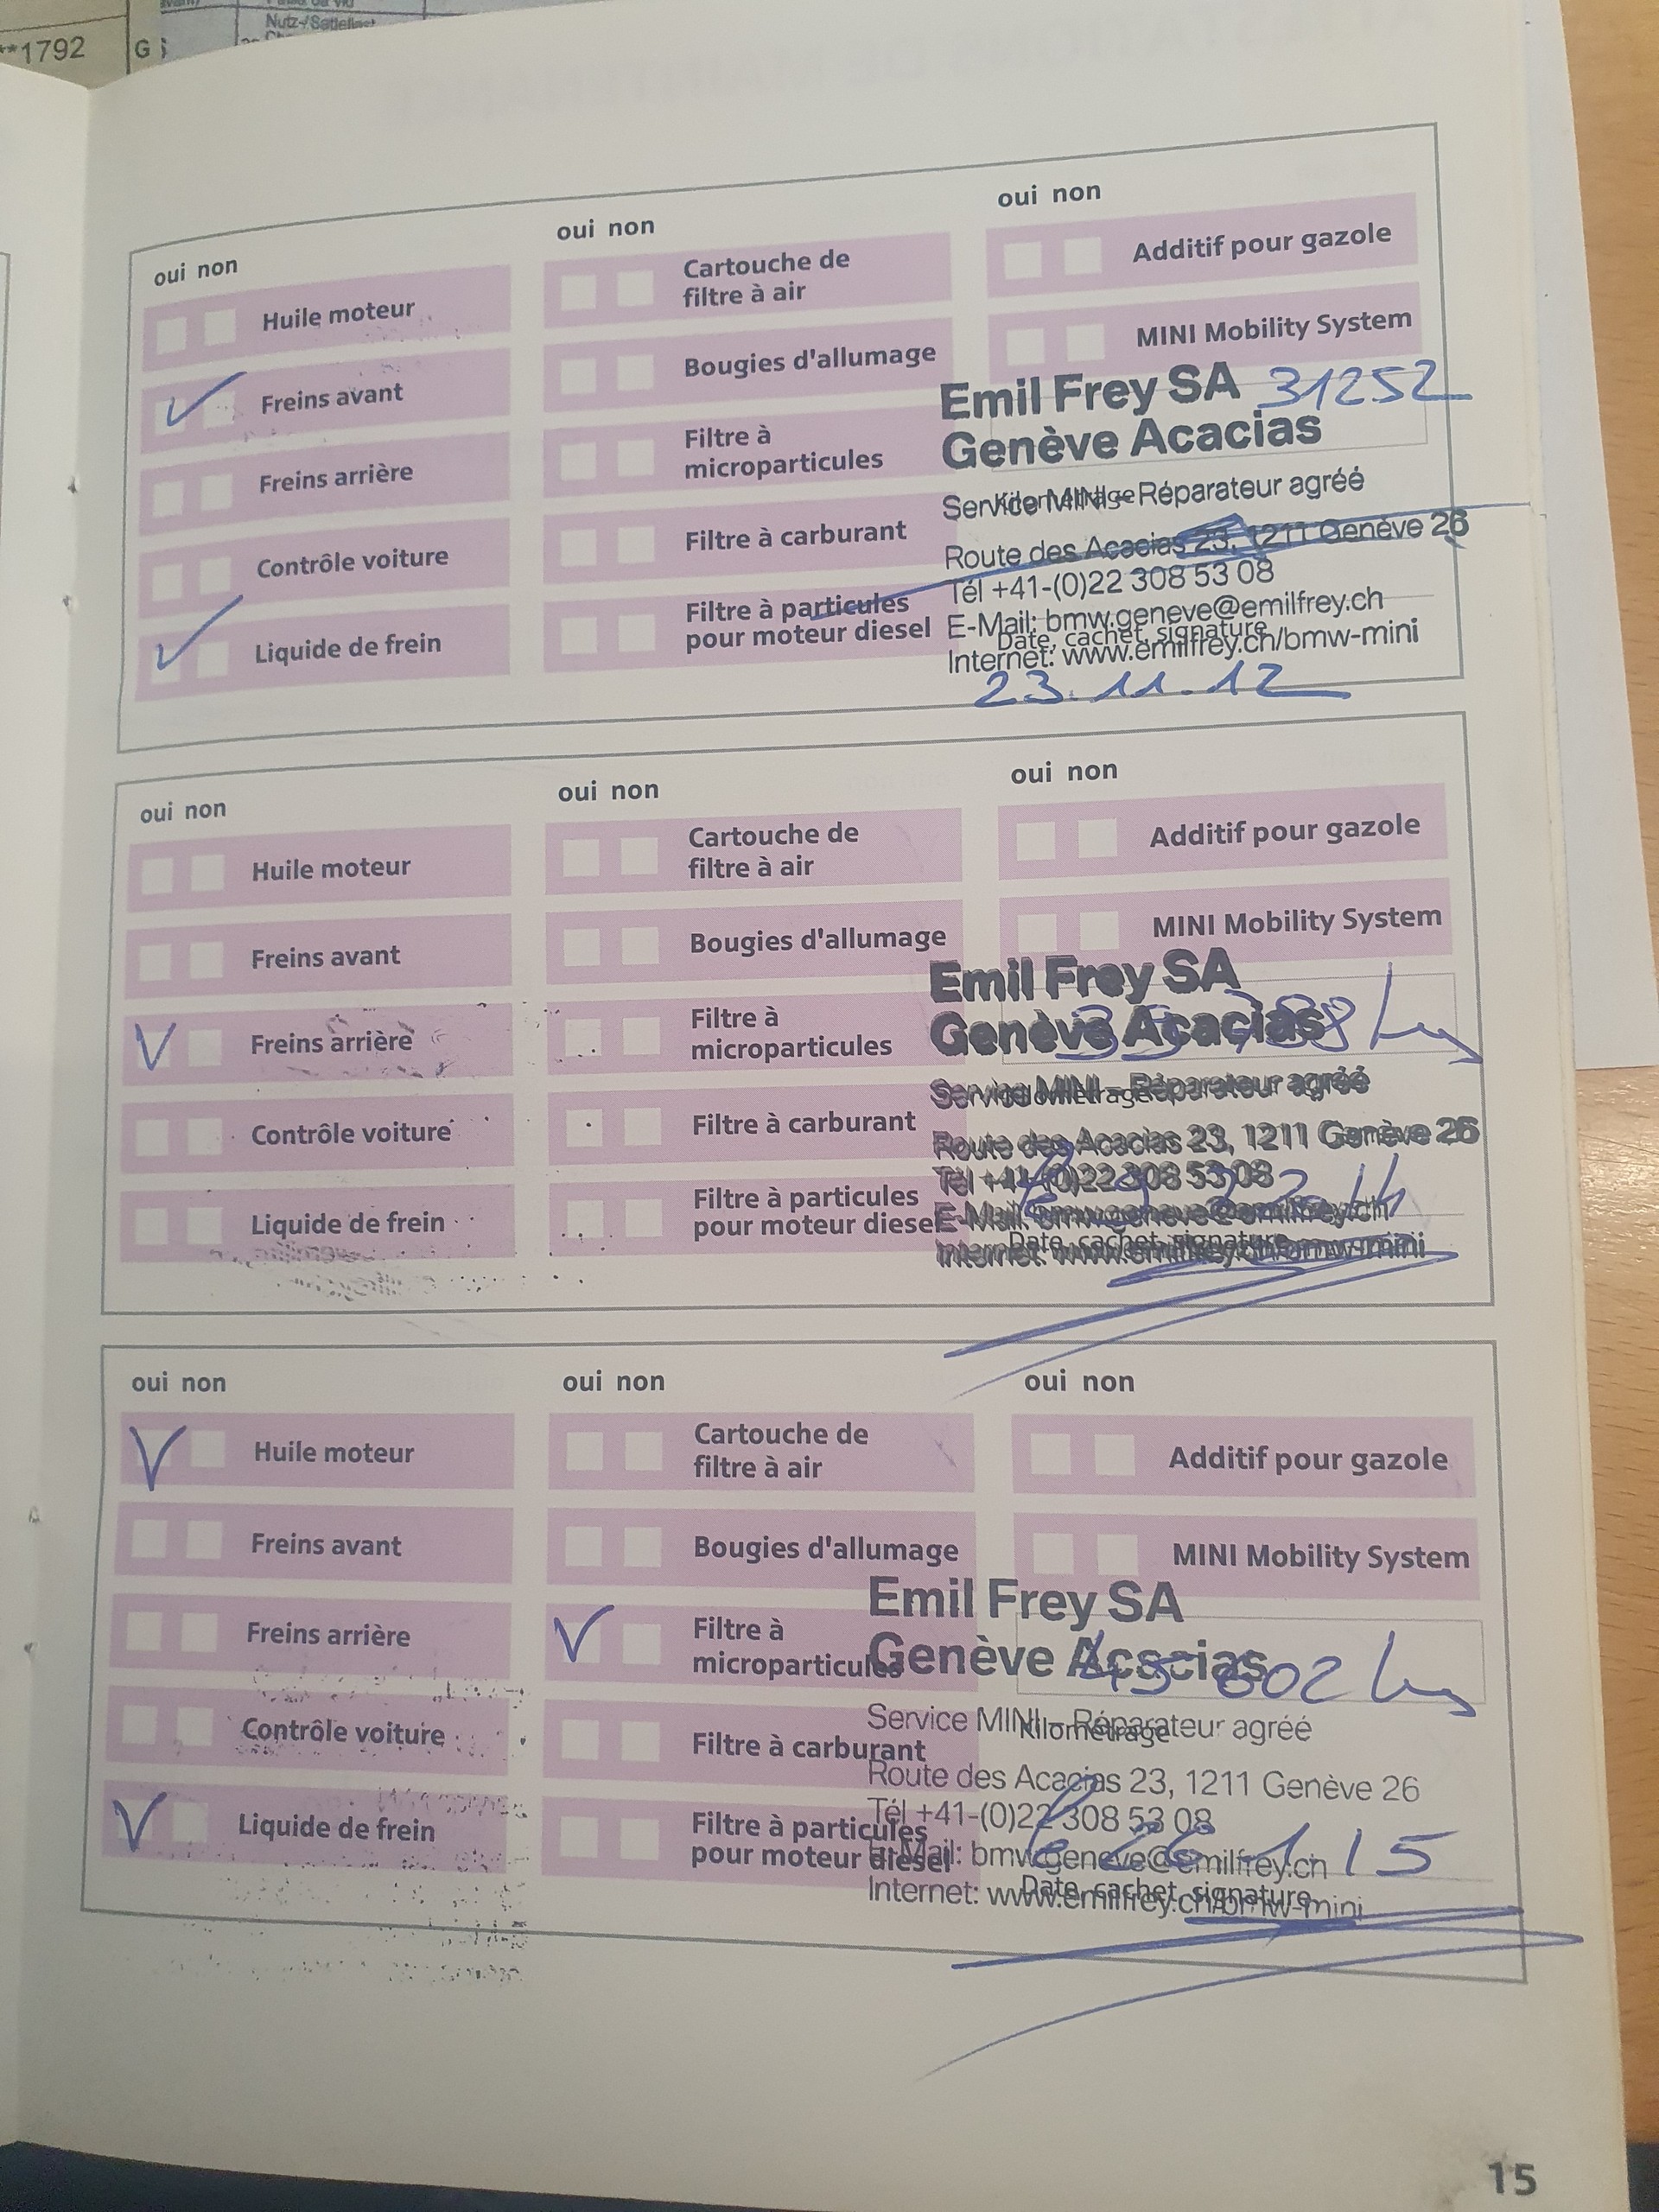 **1792
G
Nutz-/Sattellast
oui non
Huile moteur
Freins avant
Freins arrière
Contrôle voiture
Liquide de frein
oui non
Cartouche de
filtre à air
Bougies d'allumage
Filtre à
microparticules
Filtre à carburant
Filtre à particules
pour moteur diesel
oui non
Additif pour gazole
MINI Mobility System
31252
Emil Frey SA
Genève Acacias
Kilométrage
Service MINI – Réparateur agréé
Route des Acacias 23, 1211 Genève 26
Tél +41-(0)22 308 53 08
E-Mail: bmw.geneve@emilfrey.ch
Date, cachet, signature
Internet: www.emilfrey.ch/bmw-mini
23.11.12
oui non
Huile moteur
Freins avant
Freins arrière
Contrôle voiture
Liquide de frein
oui non
Cartouche de
filtre à air
Bougies d'allumage
Filtre à
microparticules
Filtre à carburant
Filtre à particules
pour moteur diesel
oui non
Additif pour gazole
MINI Mobility System
Emil Frey SA
Genève Acacias
Kilométrage
Service MINI – Réparateur agréé
Route des Acacias 23, 1211 Genève 26
Tél +41-(0)22 308 53 08
E-Mail: bmw.geneve@emilfrey.ch
Date, cachet, signature
Internet: www.emilfrey.ch/bmw-mini
oui non
Huile moteur
Freins avant
Freins arrière
Contrôle voiture
Liquide de frein
oui non
Cartouche de
filtre à air
Bougies d'allumage
Filtre à
microparticules
Filtre à carburant
Filtre à particules
pour moteur diesel
oui non
Additif pour gazole
MINI Mobility System
Emil Frey SA
Genève Acacias
45 602 km
Kilométrage
Service MINI – Réparateur agréé
Route des Acacias 23, 1211 Genève 26
Tél +41-(0)22 308 53 08
E-Mail: bmw.geneve@emilfrey.ch
Date, cachet, signature
Internet: www.emilfrey.ch/bmw-mini
15